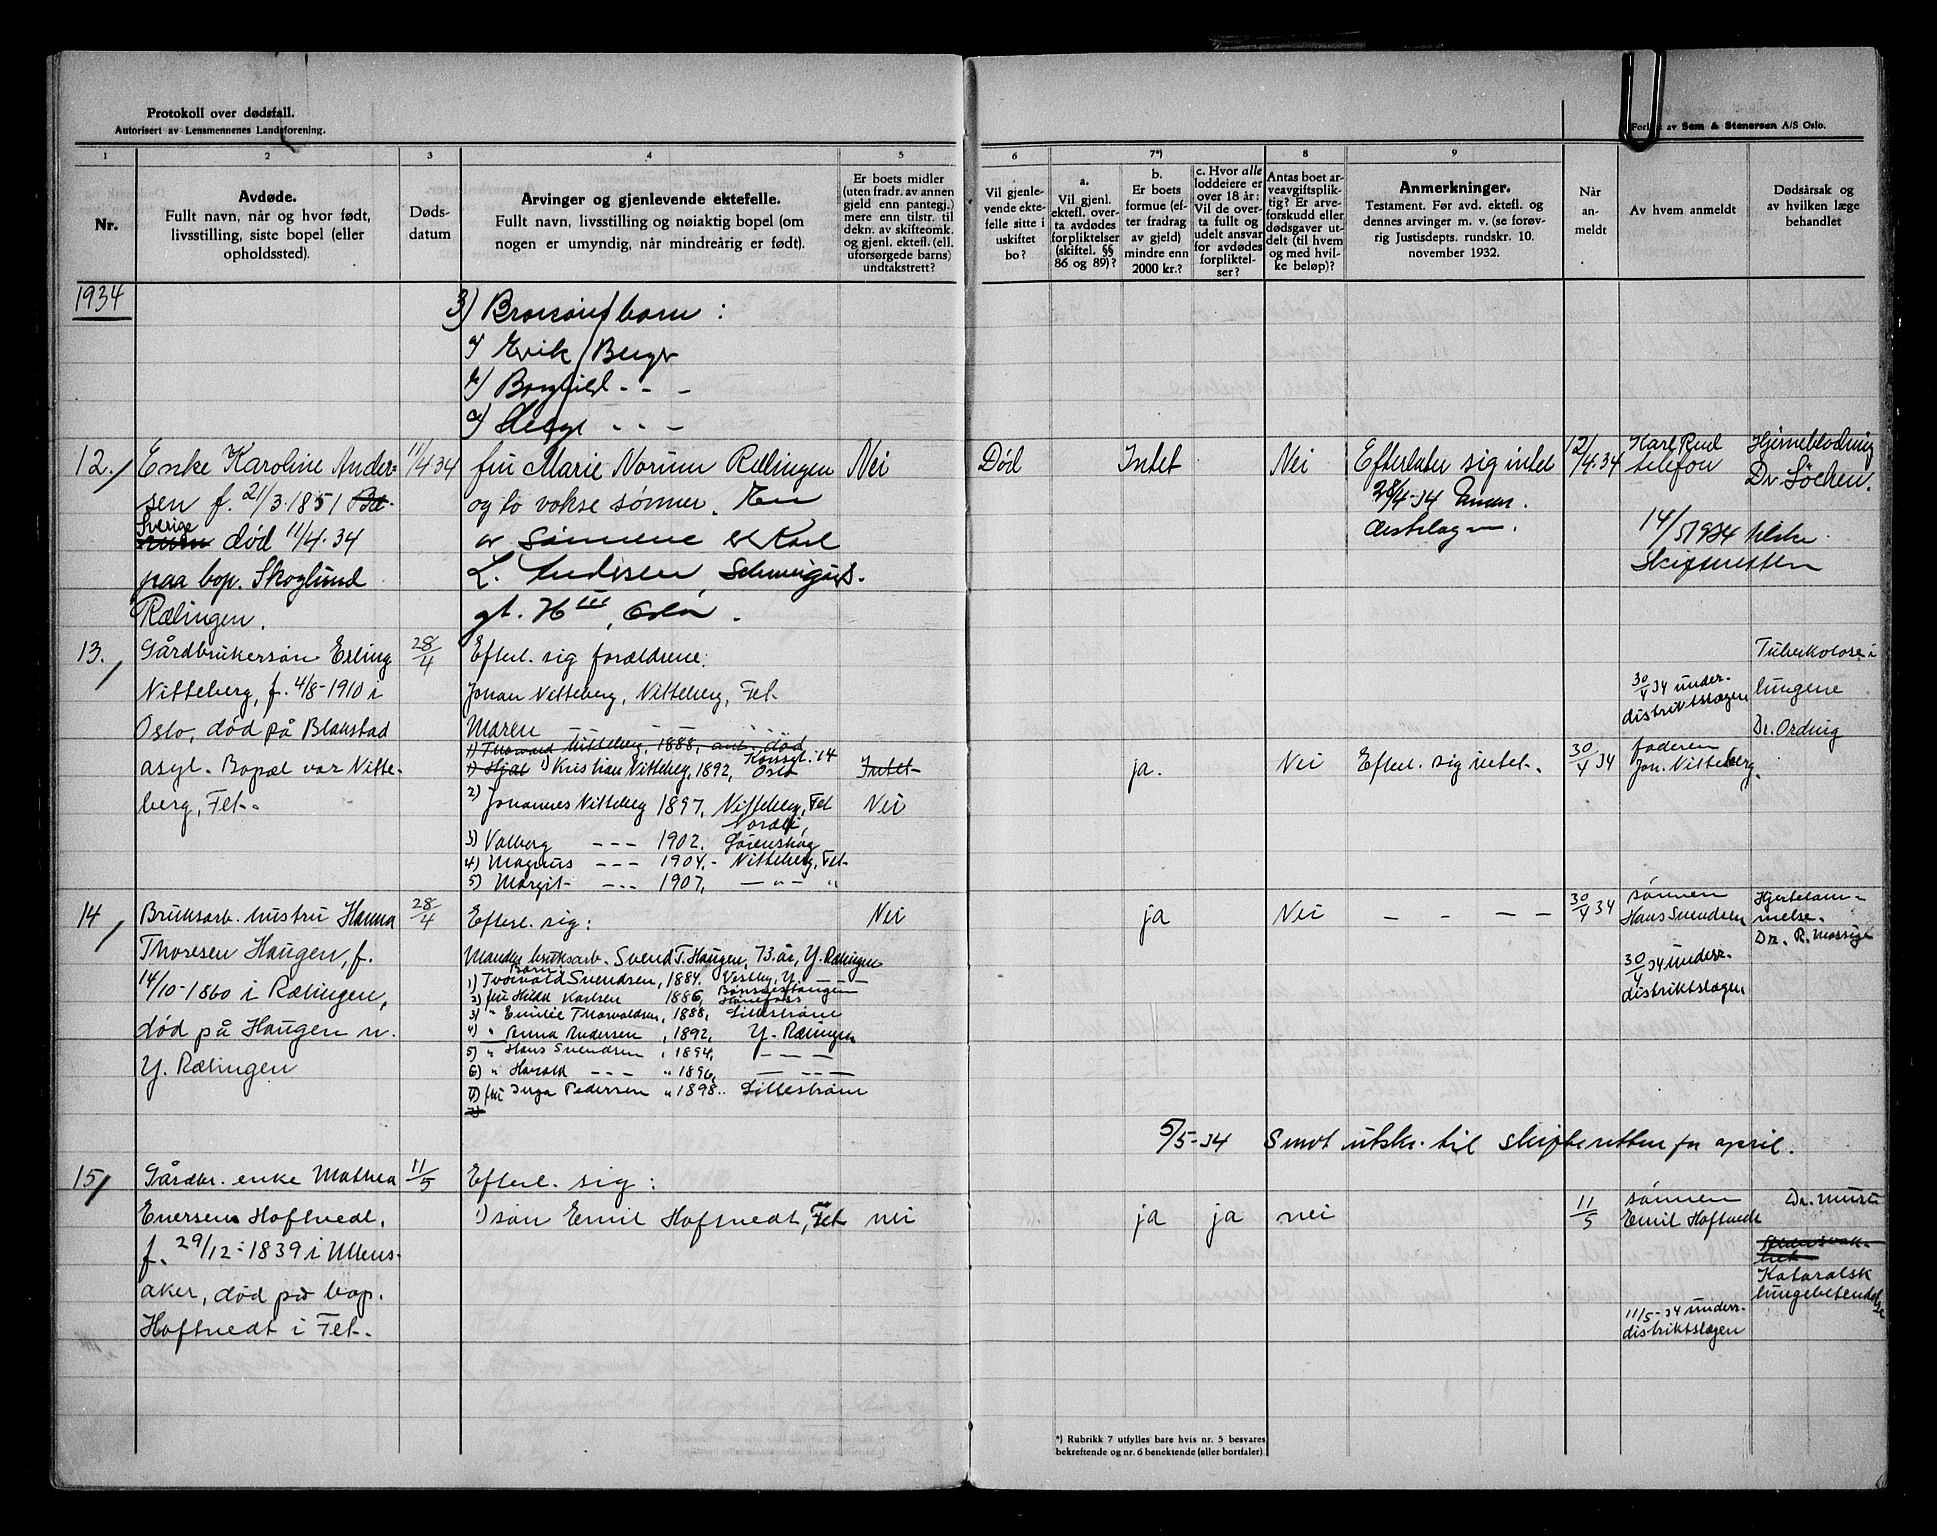 Protokoll over dødsfall.
Autorisert av Lensmennenes Landsforening.
Sem & Stenersen A/S Oslo.
1 2 3 4 5 6 7*) 8 9
Nr.
Avdøde.
Fullt navn, når og hvor født,
livsstilling, siste bopel (eller
opholdssted).
Døds-
datum
Arvinger og gjenlevende ektefelle.
Fullt navn, livsstilling og nøiaktig bopel (om
nogen er umyndig, når mindreårig er født).
Er boets midler
(uten fradr. av annen
gjeld enn pantegj.)
mere enn tilstr. til
dekn. av skifteomk.
og gjenl. ektefl. (ell.
uforsørgede barns)
undtakstrett?
Vil gjenle-
vende ekte-
felle sitte i
uskiftet
bo?
a.
Vil gjenl.
ektefl. over-
ta avdødes
forpliktelser
(skiftel. §§
86 og 89)?
b.
Er boets
formue (ef-
ter fradrag
av gjeld)
mindre enn
2000 kr.?
c. Hvor alle
loddeiere er
over 18 år:
Vil de over-
ta fullt og
udelt ansvar
for avdødes
forpliktel-
ser?
Antas boet ar-
veavgiftsplik-
tig? Er arve-
forskudd eller
dødsgaver ut-
delt (til hvem
og med hvil-
ke beløp)?
Anmerkninger.
Testament. Før avd. ektefl. og
dennes arvinger m. v. (se forøv-
rig Justisdepts. rundskr. 10.
november 1932.
Når
an-
meldt
Av hvem anmeldt
Dødsårsak og
av hvilken læge
behandlet
1934
3) Brorsønsbarn:
a) Erik Berger
b) Borghild - - -
c) Helge - - -
12. Enke Karoline Ander-
sen f. 21/3.1851
Sverige
død 11/4.34
paa bop. Skoglund
Rælingen.
11/4.34
fru Marie Norum Rælingen
og to vokse sønner. En
av Sønnene er Karl
L. Andersen, Schweigårds-
gt. III, Oslo.
Nei
Død
Intet
Nei
Efterlater sig intet
28/4-34
12/4.34
Karl Ruud
telefon
Hjerneblødning
Dr. Söchen.
14/5 1934
Skifteretten
13. Gårdbrukersøn Erling
Nitteberg, f. 4/8-1910 i
Oslo, død på Blakstad
asyl. Bopæl var Nitte-
berg, Fet.
28/4
Efterl. sig forældrene:
Johan Nitteberg, Nitteberg, Fet.
Maren
1) Thorvald Nitteberg, 1888, død
1) Kristian Nitteberg, 1892, Oslo
2) Johannes Nitteberg 1897, Nitteberg, Fet
3) Valborg - - - 1902. Nordli, Lørenskog
4) Magnus - - - 1904.- Nitteberg, Fet-
5) Margit - - - 1907, - " - "
Intet
Nei
ja.
Nei
Efterl. sig intet.
30/4 34
faderen
Joh. Nitteberg.
30/4 34 under-
distriktslægen
Tuberkolose i
lungene
Dr. Ording
14 Bruksarb. hustru Hanna
Thoresen Haugen, f.
14/10-1860 i Rælingen,
død på Haugen n.
Y. Rælingen
28/4
Efterl. sig:
Manden bruksarb. Svend T. Haugen, 73 år, Y. Rælingen
Barn:
1) Torvald Svendsen, 1884. Vestby, Y. —
2) fru Hilda Karlsen 1886, Hønefoss
3) " Emilie Thorvaldsen, 1888, Lillestrøm
4) " Anna Andersen, 1892, Y. Rælingen
5) " Hans Svendsen, 1894, - - -
6) " Harald - - - " 1896, - - -
7) fru Inga Pedersen " 1898.. Lillestrøm
Nei
ja
Nei
- - - -
30/4 34
sønnen
Hans Svendsen,
30/4 34 under-
distriktslægen
Hjertelam-
melse.
Dr. R. Mossige
5/5-34 Sendt utskr. til skifteretten for april.
15 Gårdbr. enke Mathea
Enersen Hoftvedt,
f. 29/12-1839 i Ullens-
aker, død på bop.
Hoftvedt i Fet.
11/5
Efterl. sig:
1) søn Emil Hoftvedt, Fet
nei
ja
ja
nei
11/5
sønnen
Emil Hoftvedt
11/5-34 under-
distriktslægen
Kataralsk
lungebetendelse
*) Rubrikk 7 utfylles bare hvis nr. 5 besvares
bekreftende og nr. 6 benektende (eller bortfaler).